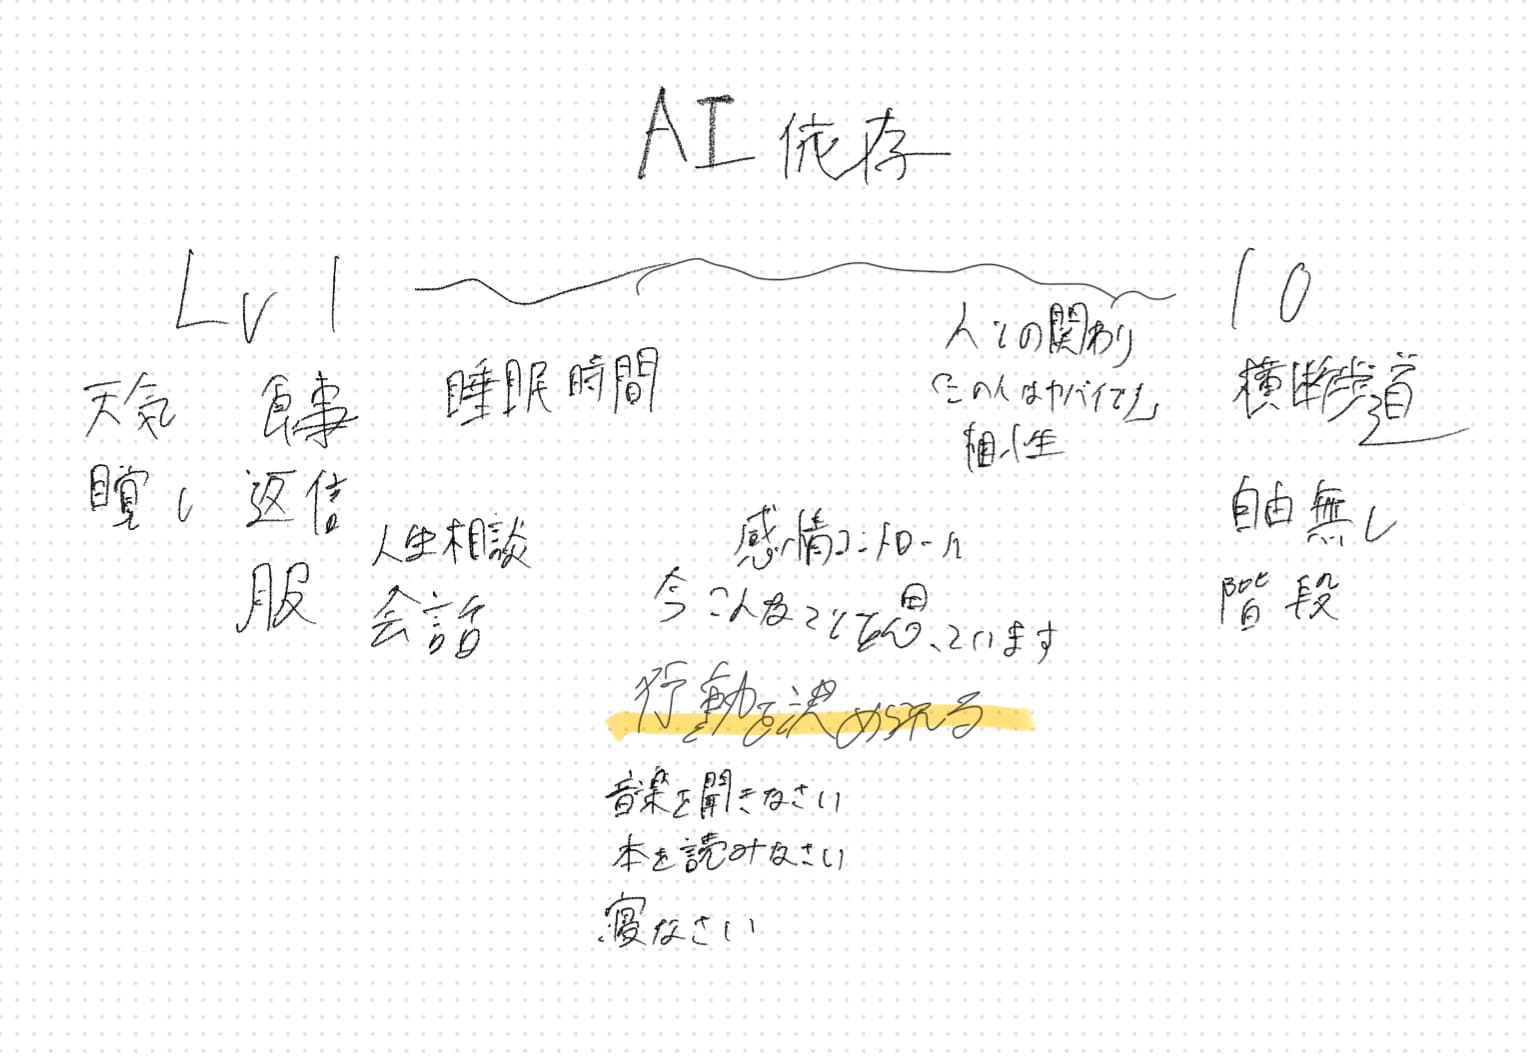 AI 依存
Lv 1 10
天気 食事 睡眠時間
目覚し 返信
服
人生相談
会話
人との関わり
「この人はヤバイです」
相性
感情コントロール
今こんなことを思っています
行動を決められる
音楽を聞きなさい
本を読みなさい
寝なさい
横断歩道
自由無し
階段